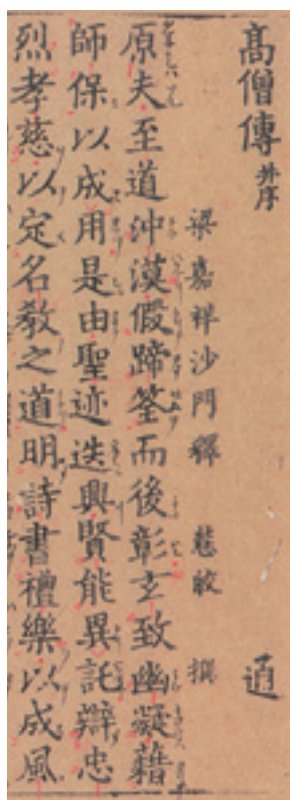 高僧傳 并序 通
梁嘉祥沙門釋 慧皎 撰
原夫至道沖漠假蹄筌而後彰玄致幽凝藉
師保以成用是由聖迹迭興賢能異託辯忠
烈孝慈以定名教之道明詩書禮樂以成風